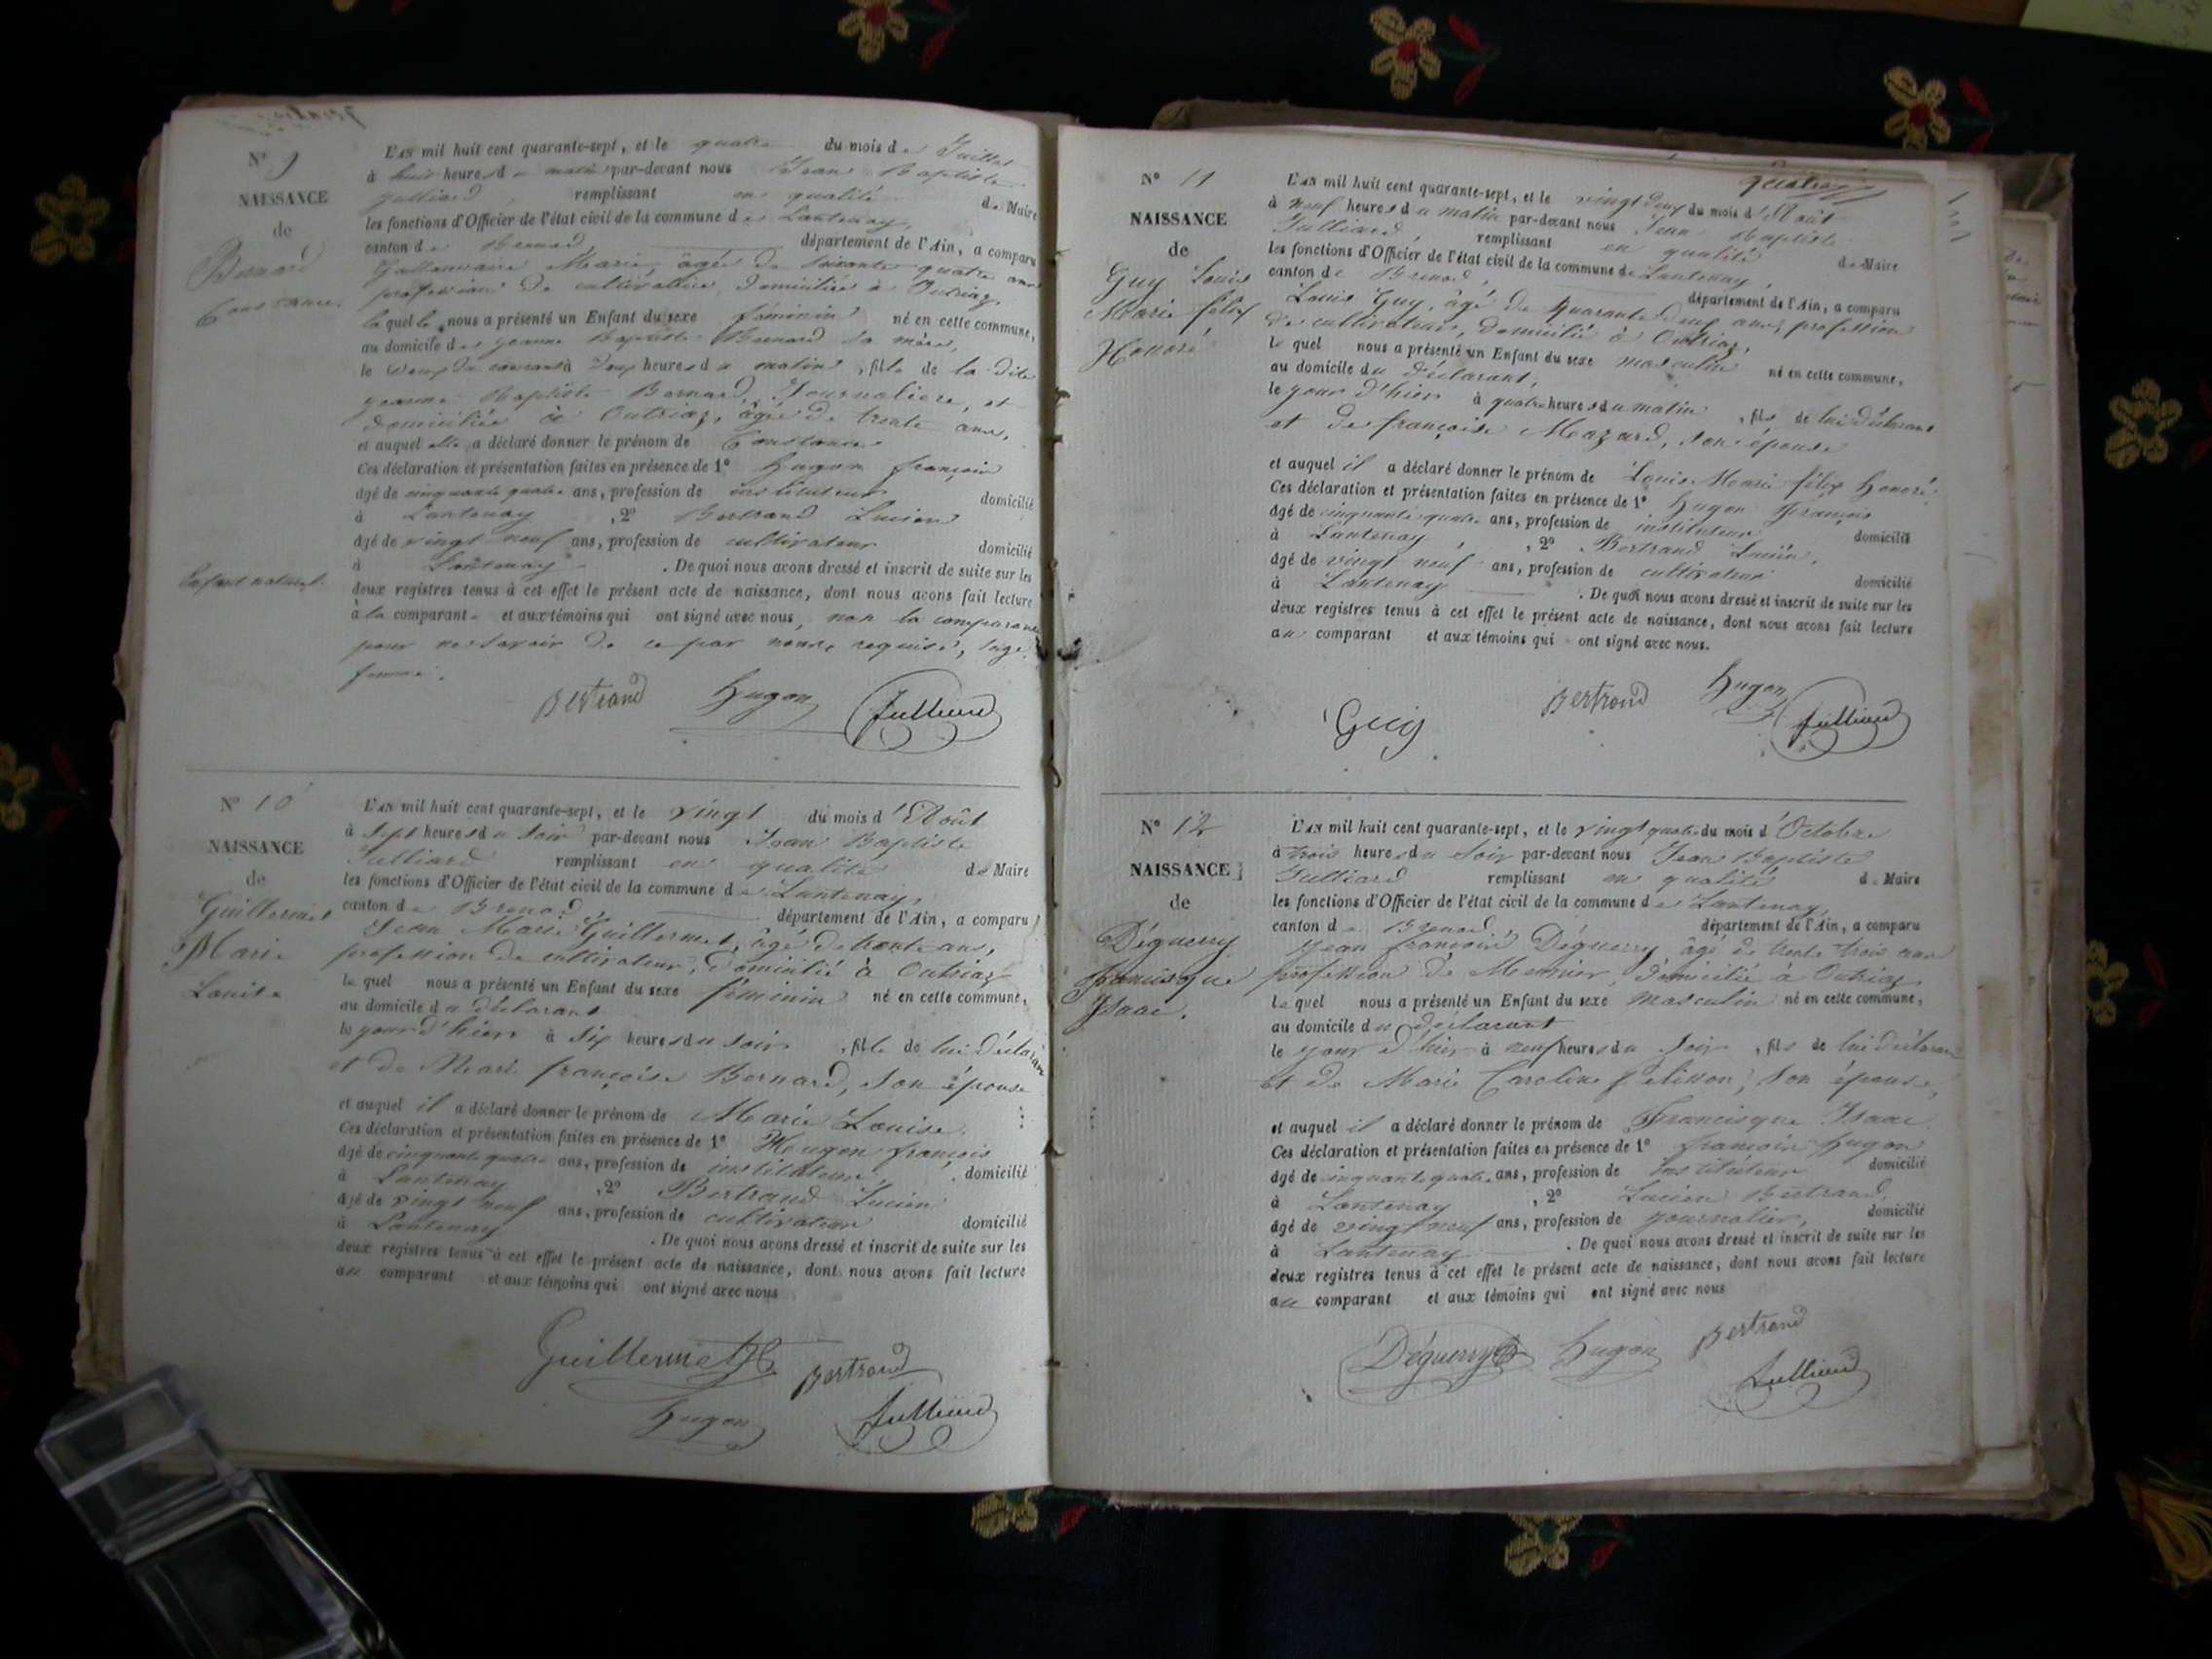 N° 9
NAISSANCE
de
Bernard
Constance
Enfant naturel
L'AN mil huit cent quarante-sept, et le quatre du mois de Juillet
à huit heures du matin par-devant nous Jean Baptiste
Julliard remplissant en qualité de Maire
les fonctions d'Officier de l'état civil de la commune de Lantenay,
canton de Brenod, département de l'Ain, a comparu
Marie, âgée de soixante quatre ans
profession de cultivatrice, domiciliée à Outriaz,
laquelle nous a présenté un Enfant du sexe féminin né en cette commune,
au domicile de Jeanne Baptiste Bernard sa mère,
le deux du courant à deux heures du matin, fille de la dite
Jeanne Baptiste Bernard, Journalière, et
domiciliée à Outriaz, âgée de trente ans,
et auquel elle a déclaré donner le prénom de Constance
Ces déclaration et présentation faites en présence de 1° Hugon françois
âgé de cinquante quatre ans, profession de instituteur domicilié
à Lantenay, 2° Bertrand Lucien
âgé de vingt neuf ans, profession de cultivateur domicilié
à Lantenay. De quoi nous avons dressé et inscrit de suite sur les
deux registres tenus à cet effet le présent acte de naissance, dont nous avons fait lecture
à la comparante et aux témoins qui ont signé avec nous, non la comparante
pour ne savoir de ce par nous requise, sage
femme.
Bertrand Hugon Julliard
N° 10
NAISSANCE
de
Guillermet
Marie
Louise
L'AN mil huit cent quarante-sept, et le vingt du mois d'Août
à sept heures du soir par-devant nous Jean Baptiste
Julliard remplissant en qualité de Maire
les fonctions d'Officier de l'état civil de la commune de Lantenay,
canton de Brenod, département de l'Ain, a comparu
Jean Marie Guillermet, âgé de trente ans,
profession de cultivateur, domicilié à Outriaz
lequel nous a présenté un Enfant du sexe féminin né en cette commune,
au domicile du déclarant
le jour d'hier à six heures du soir, fille de lui déclarant
et de Marie françoise Bernard, son épouse
et auquel il a déclaré donner le prénom de Marie Louise.
Ces déclaration et présentation faites en présence de 1° Hugon françois
âgé de cinquante quatre ans, profession de instituteur, domicilié
à Lantenay, 2° Bertrand Lucien
âgé de vingt neuf ans, profession de cultivateur domicilié
à Lantenay. De quoi nous avons dressé et inscrit de suite sur les
deux registres tenus à cet effet le présent acte de naissance, dont nous avons fait lecture
au comparant et aux témoins qui ont signé avec nous
Guillermet Bertrand
Hugon Julliard
Quatre
N° 11
NAISSANCE
de
Guy Louis
Marie félix
Honoré
L'AN mil huit cent quarante-sept, et le vingt deux du mois d'Août
à neuf heures du matin par-devant nous Jean Baptiste
Julliard, remplissant en qualité de Maire
les fonctions d'Officier de l'état civil de la commune de Lantenay,
canton de Brenod, département de l'Ain, a comparu
Louis Guy, âgé de quarante deux ans, profession
de cultivateur, domicilié à Outriaz,
lequel nous a présenté un Enfant du sexe masculin né en cette commune,
au domicile du déclarant,
le jour d'hier à quatre heures du matin, fils de lui déclarant
et de françoise Mazard, son épouse
et auquel il a déclaré donner le prénom de Louis Marie félix honoré
Ces déclaration et présentation faites en présence de 1° hugon françois
âgé de cinquante quatre ans, profession de instituteur domicilié
à Lantenay, 2° Bertrand Lucien,
âgé de vingt neuf ans, profession de cultivateur domicilié
à Lantenay. De quoi nous avons dressé et inscrit de suite sur les
deux registres tenus à cet effet le présent acte de naissance, dont nous avons fait lecture
au comparant et aux témoins qui ont signé avec nous.
Guy Bertrand Hugon Julliard
N° 12
NAISSANCE
de
Déguerry
francisque
Isaac.
L'AN mil huit cent quarante-sept, et le vingt quatre du mois d'Octobre
à trois heures du soir par-devant nous Jean Baptiste
Julliard remplissant en qualité de Maire
les fonctions d'Officier de l'état civil de la commune de Lantenay,
canton de Brenod. département de l'Ain, a comparu
Jean françois Déguerry âgé de trente trois ans
profession de Meunier, domicilié à Outriaz,
lequel nous a présenté un Enfant du sexe masculin né en cette commune,
au domicile du déclarant
le jour d'hier à neuf heures du soir, fils de lui déclarant
et de Marie Caroline Pélisson, son épouse,
et auquel il a déclaré donner le prénom de Francisque Isaac
Ces déclaration et présentation faites en présence de 1° françois hugon
âgé de cinquante quatre ans, profession de instituteur domicilié
à Lantenay, 2° Lucien Bertrand,
âgé de vingt neuf ans, profession de journalier, domicilié
à Lantenay. De quoi nous avons dressé et inscrit de suite sur les
deux registres tenus à cet effet le présent acte de naissance, dont nous avons fait lecture
au comparant et aux témoins qui ont signé avec nous
Déguerry Hugon Bertrand
Julliard